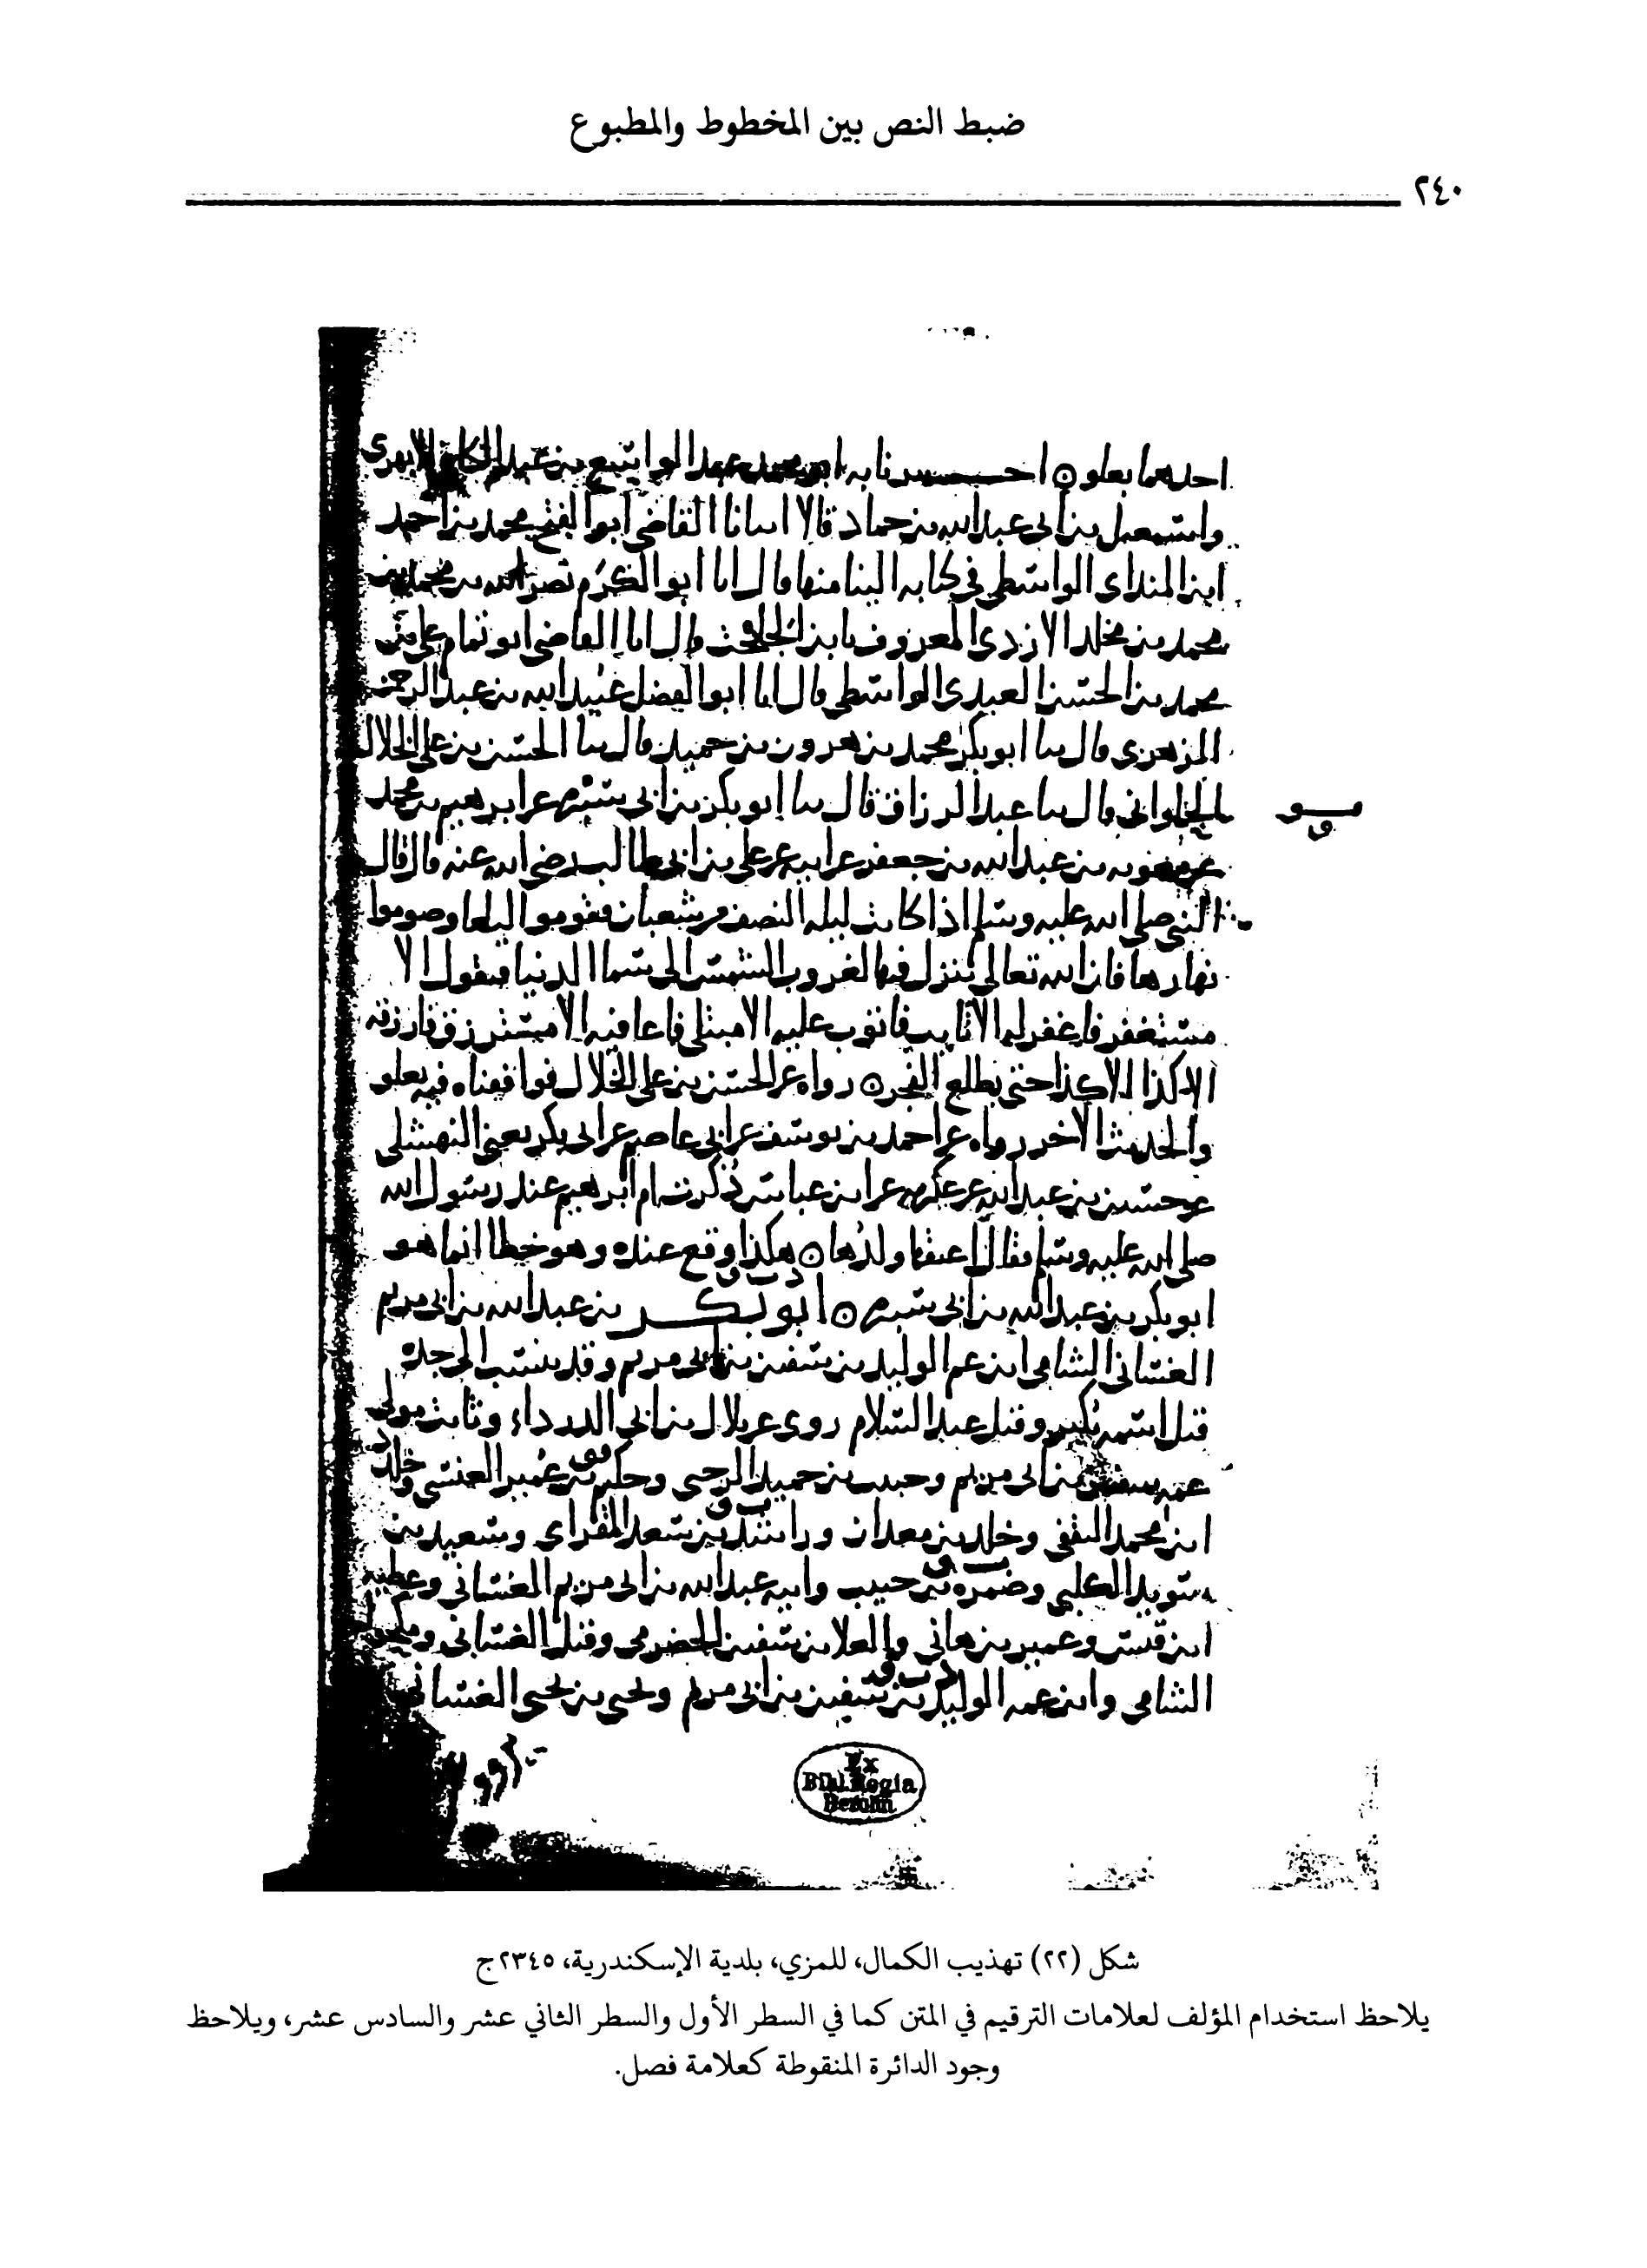 ضبط النص بين المخطوط والمطبوع
٢٤٠
احدهما بعلو ں اخـــبرنا به ابو محمد عبد الواسع بن عبد الكافي الابهري
واسمعيل بن ابي عبد الله بن حماد قالا انبانا القاضي ابو الفتح محمد بن احمد
ابن المنداى الواسطي في كتابه الينا منها قال انا ابو الكرم نصر الله بن محمد بن
محمد بن مخلد الازدي المعروف بابن الجلخت قال انا القاضي ابو تمام علي بن
محمد بن الحسن العبدي الواسطي قال انا ابو الفضل عبيد الله بن عبد الرحمن
الزهري قال ثنا ابو بكر محمد بن هرون بن حميد قال ثنا الحسن بن علي الخلال
الحلواني قال ثنا عبد الرزاق قال ثنا ابو بكر بن ابي سبرة عن ابرهيم بن محمد
عن معوية بن عبد الله بن جعفر عن ابيه عن علي بن ابي طالب رضي الله عنه قال قال
النبي صلى الله عليه وسلم اذا كانت ليلة النصف من شعبان فقوموا ليلها وصوموا
نهارها فان الله تعالى ينزل فيها لغروب الشمس الى سما الدنيا فيقول الا
مستغفر فاغفر له الا تايب فاتوب عليه الا مبتلى فاعافيه الا مسترزق فارزقه
الا كذا الا كذا حتى يطلع الفجر ں رواه عن الحسن بن علي الخلال فوافقناه فيه بعلو
والحديث الاخر رواه عن احمد بن يوسف عن ابي عاصم عن ابي بكر يعني النهشلي
عن حسين بن عبد الله عن عكرمه عن ابن عباس ذكرت ام ابرهيم عند رسول الله
صلى الله عليه وسلم فقال اعتقها ولدها ں هكذا وقع عنده وهو خطا انما هو
ابو بكر بن عبد الله بن ابي سبرة ں ابو بكـــر بن عبد الله بن ابي مريم
الغساني الشامي ابن عم الوليد بن سفين بن ابي مريم وقد ينسب الى جده
قيل اسمه بكير وقيل عبد السلام روى عن بلال بن ابي الدرداء وثابت مولى
عمه سفين بن ابي مريم وحبيب بن حميد الرحبي وحكيم بن عمير العنسي وخالد
ابن محمد الثقفي وخلد بن معدان وراشد بن سعد المقراي وسعيد بن
سويد الكلبي وضمرة بن حبيب وابيه عبد الله بن ابي مريم الغساني وعطية
ابن قيس وعمير بن هاني والعلا بن سفين الحضرمي وقيل الغساني ومكحول
الشامي وابن عمه الوليد بن سفين بن ابي مريم ويحيى بن يحيى الغساني
Ex
Bibl. Regia
Berolin.
شكل (٢٢) تهذيب الكمال، للمزي، بلدية الإسكندرية، ٢٣٤٥ج
يلاحظ استخدام المؤلف لعلامات الترقيم في المتن كما في السطر الأول والسطر الثاني عشر والسادس عشر، ويلاحظ
وجود الدائرة المنقوطة كعلامة فصل.